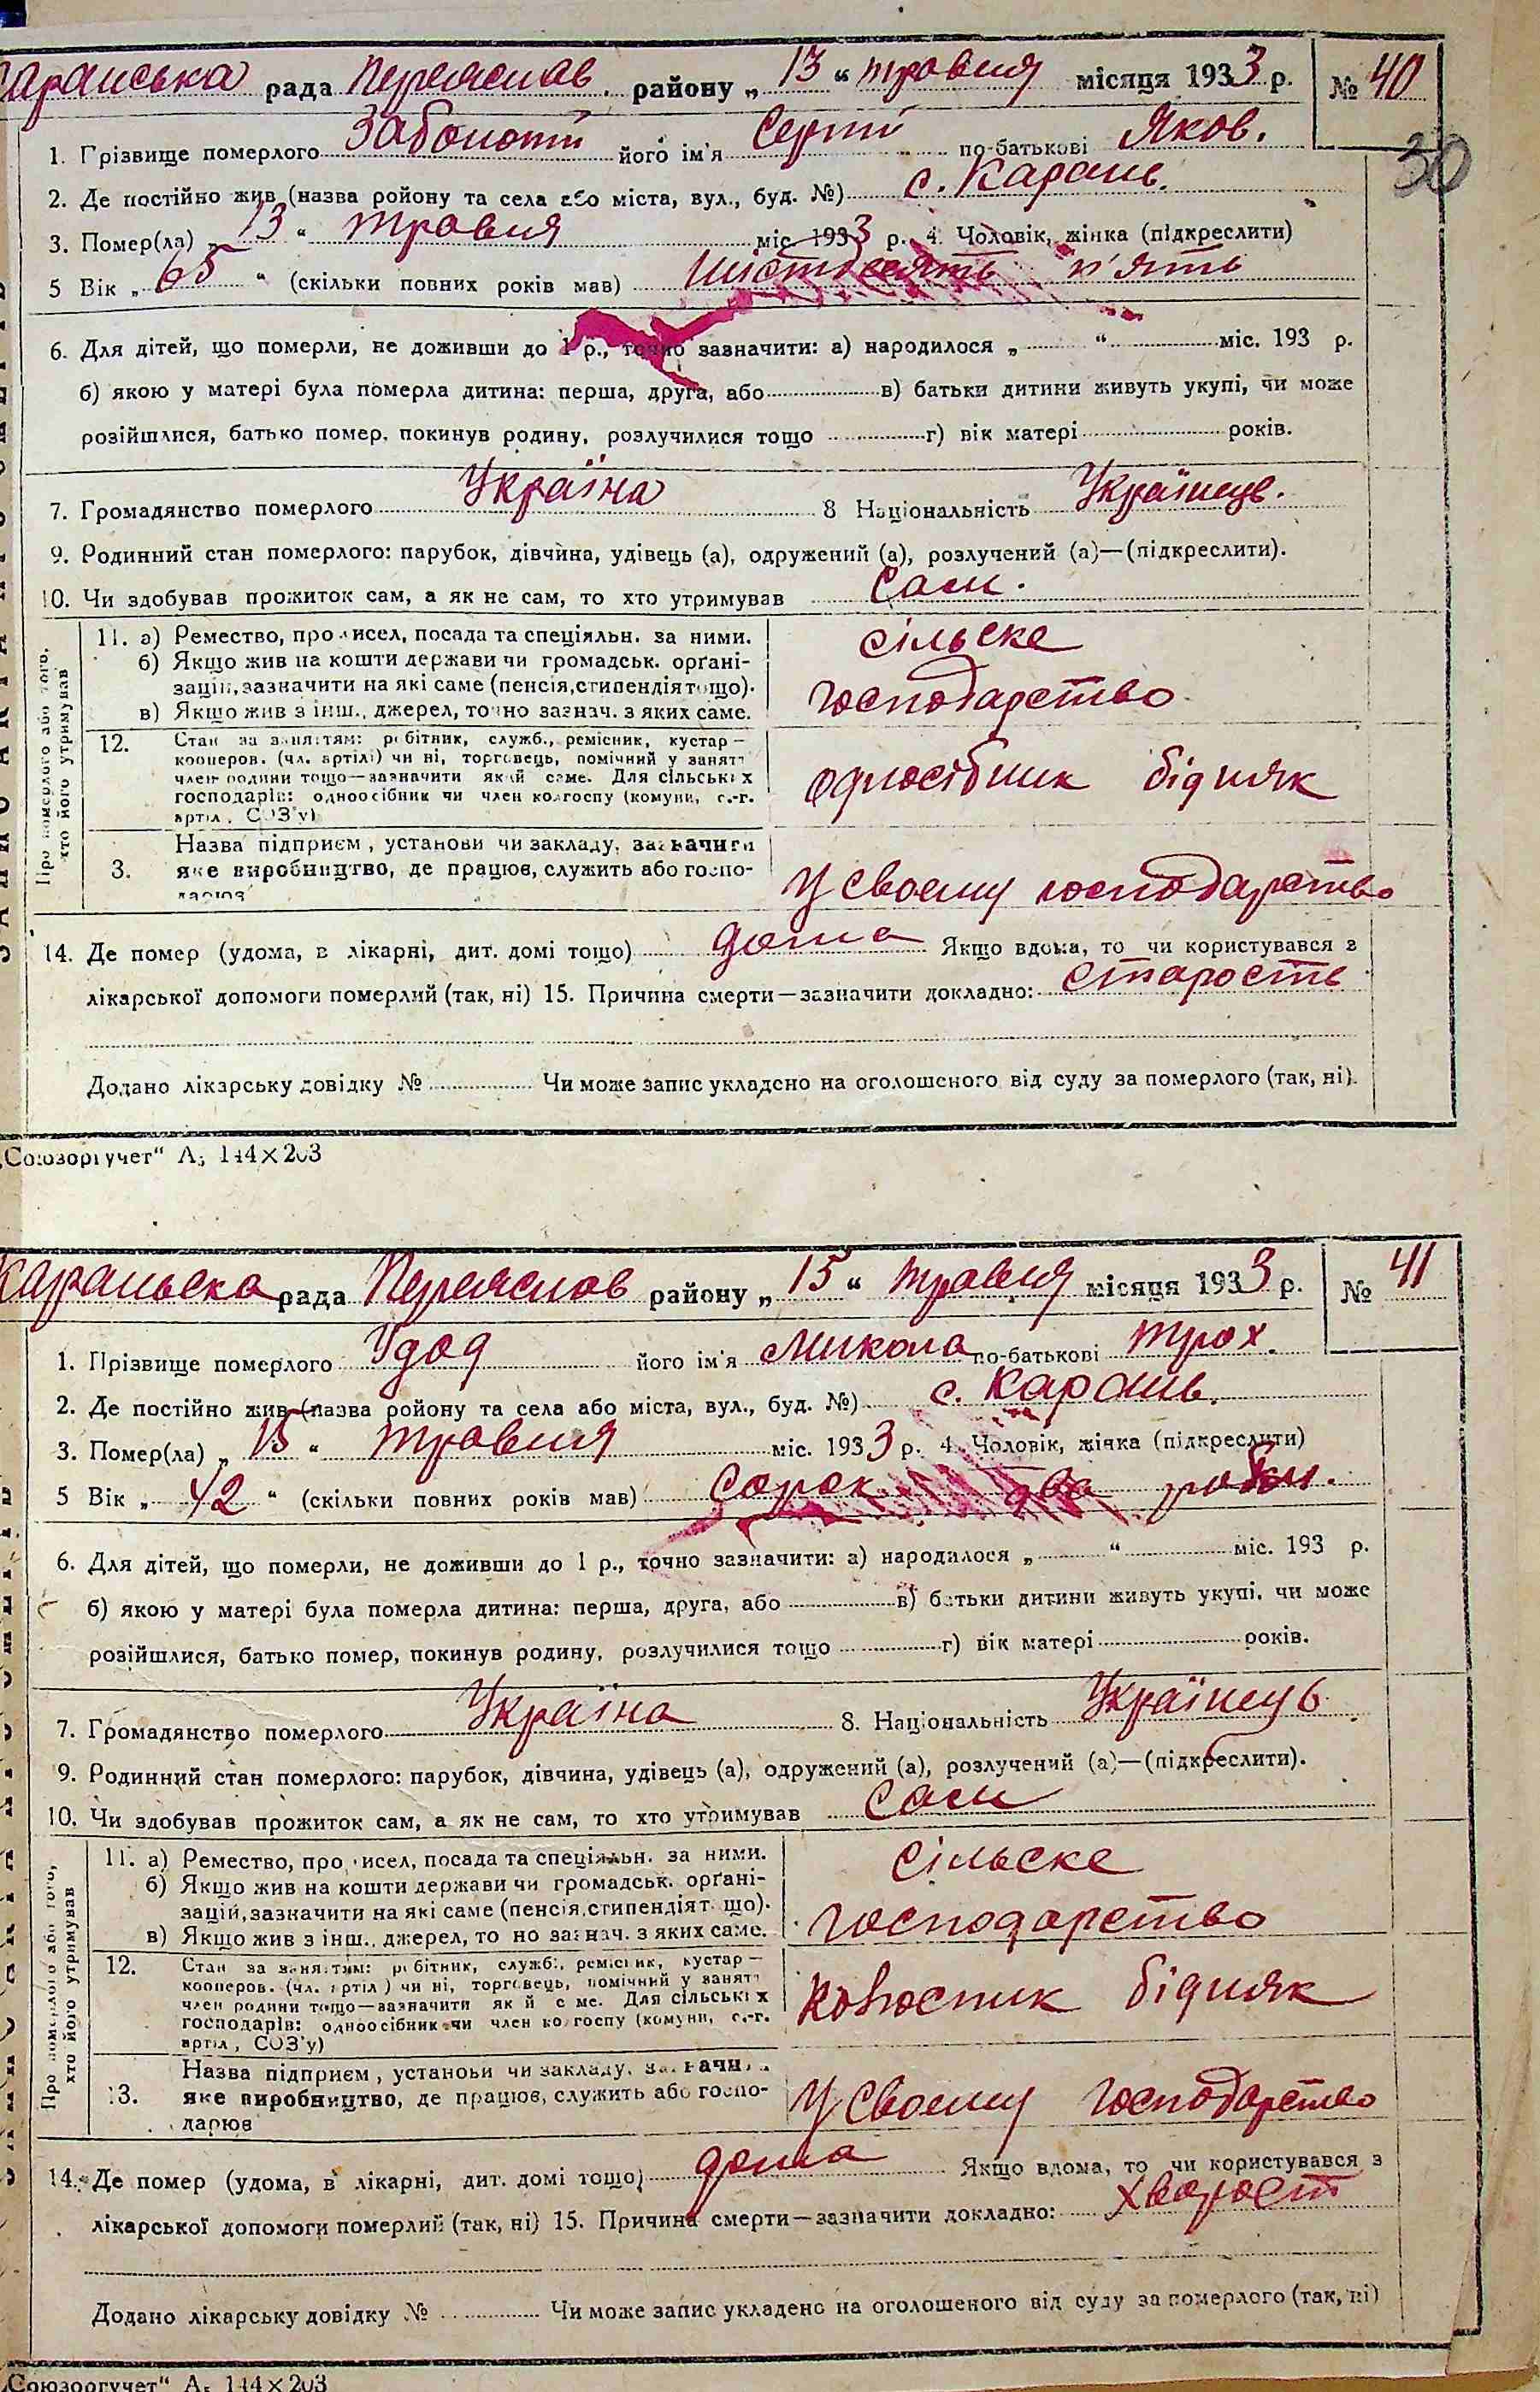 Каранська рада Переяслав. району „13“ травня місяця 1933 р. № 40
30
1. Грізвище померлого Заболотн його ім'я Сергій по-батькові Яков.
2. Де постійно жив (назва ройону та села або міста, вул., буд. №) с. Карань.
3. Помер(ла) „13“ травня міс. 1933 р. 4. Чоловік, жінка (підкреслити)
5 Вік „65“ (скільки повних років мав) шістдесять п'ять
6. Для дітей, що померли, не доживши до 1 р., точно зазначити: а) народилося „ “ міс. 193 р.
б) якою у матері була померла дитина: перша, друга, або в) батьки дитини живуть укупі, чи може
розійшлися, батько помер, покинув родину, розлучилися тощо г) вік матері років.
7. Громадянство померлого Україна 8 Національність Українець.
9. Родинний стан померлого: парубок, дівчина, удівець (а), одружений (а), розлучений (а)—(підкреслити).
10. Чи здобував прожиток сам, а як не сам, то хто утримував Сам.
Про померлого або того,
хто його утримував
11. а) Ремество, промисел, посада та спеціяльн. за ними.
б) Якщо жив на кошти держави чи громадськ. орґані-
зацій, зазначити на які саме (пенсія, стипендія тощо).
в) Якщо жив з інш., джерел, точно зазнач. з яких саме.
сільске
господарство
12. Стан за заняттям: робітник, служб., ремісник, кустар—
кооперов. (чл. артілі) чи ні, торговець, помічний у занятт
член родини тощо—зазначити який саме. Для сільських
господарів: одноосібник чи член колгоспу (комуни, с.-г.
артіл, СОЗ'у)
одноосібник бідняк
3. Назва підприєм, установи чи закладу, зазначити
яке виробництво, де працює, служить або госпо-
дарює
У своему господарство
14. Де помер (удома, в лікарні, дит. домі тощо) дома Якщо вдома, то чи користувався з
лікарської допомоги померлий (так, ні) 15. Причина смерти—зазначити докладно: старость
Додано лікарську довідку № Чи може запис укладено на оголошеного від суду за померлого (так, ні).
„Союзоргучет“ А₅ 144×203
Караньска рада Переяслов району „15“ травня місяця 1933 р. № 41
1. Прізвище померлого Удод його ім'я Микола по-батькові Трох.
2. Де постійно жив (назва ройону та села або міста, вул., буд. №) с. Карань.
3. Помер(ла) „15“ травня міс. 1933 р. 4. Чоловік, жінка (підкреслити)
5 Вік „42“ (скільки повних років мав) Сорок два роки.
6. Для дітей, що померли, не доживши до 1 р., точно зазначити: а) народилося „ “ міс. 193 р.
б) якою у матері була померла дитина: перша, друга, або в) батьки дитини живуть укупі, чи може
розійшлися, батько помер, покинув родину, розлучилися тощо г) вік матері років.
7. Громадянство померлого Україна 8. Національність Українець
9. Родинний стан померлого: парубок, дівчина, удівець (а), одружений (а), розлучений (а)—(підкреслити).
10. Чи здобував прожиток сам, а як не сам, то хто утримував Сам
Про померлого або того,
хто його утримував
11. а) Ремество, промисел, посада та спеціяльн. за ними.
б) Якщо жив на кошти держави чи громадськ. орґані-
зацій, зазначити на які саме (пенсія, стипендія тощо).
в) Якщо жив з інш., джерел, точно зазнач. з яких саме.
сільске
господарство
12. Стан за заняттям: робітник, служб., ремісник, кустар—
кооперов. (чл. артіл) чи ні, торговець, помічний у занятт
член родини тощо—зазначити який саме. Для сільських
господарів: одноосібник чи член колгоспу (комуни, с.-г.
артіл, СОЗ'у)
колосник бідняк
13. Назва підприєм, установи чи закладу, зазначи
яке виробництво, де працює, служить або госпо-
дарює
У своему господарство
14. Де помер (удома, в лікарні, дит. домі тощо) дома Якщо вдома, то чи користувався з
лікарської допомоги померлий (так, ні) 15. Причина смерти—зазначити докладно: хворост
Додано лікарську довідку № Чи може запис укладено на оголошеного від суду за померлого (так, ні)
„Союзоргучет“ А₅ 144×203